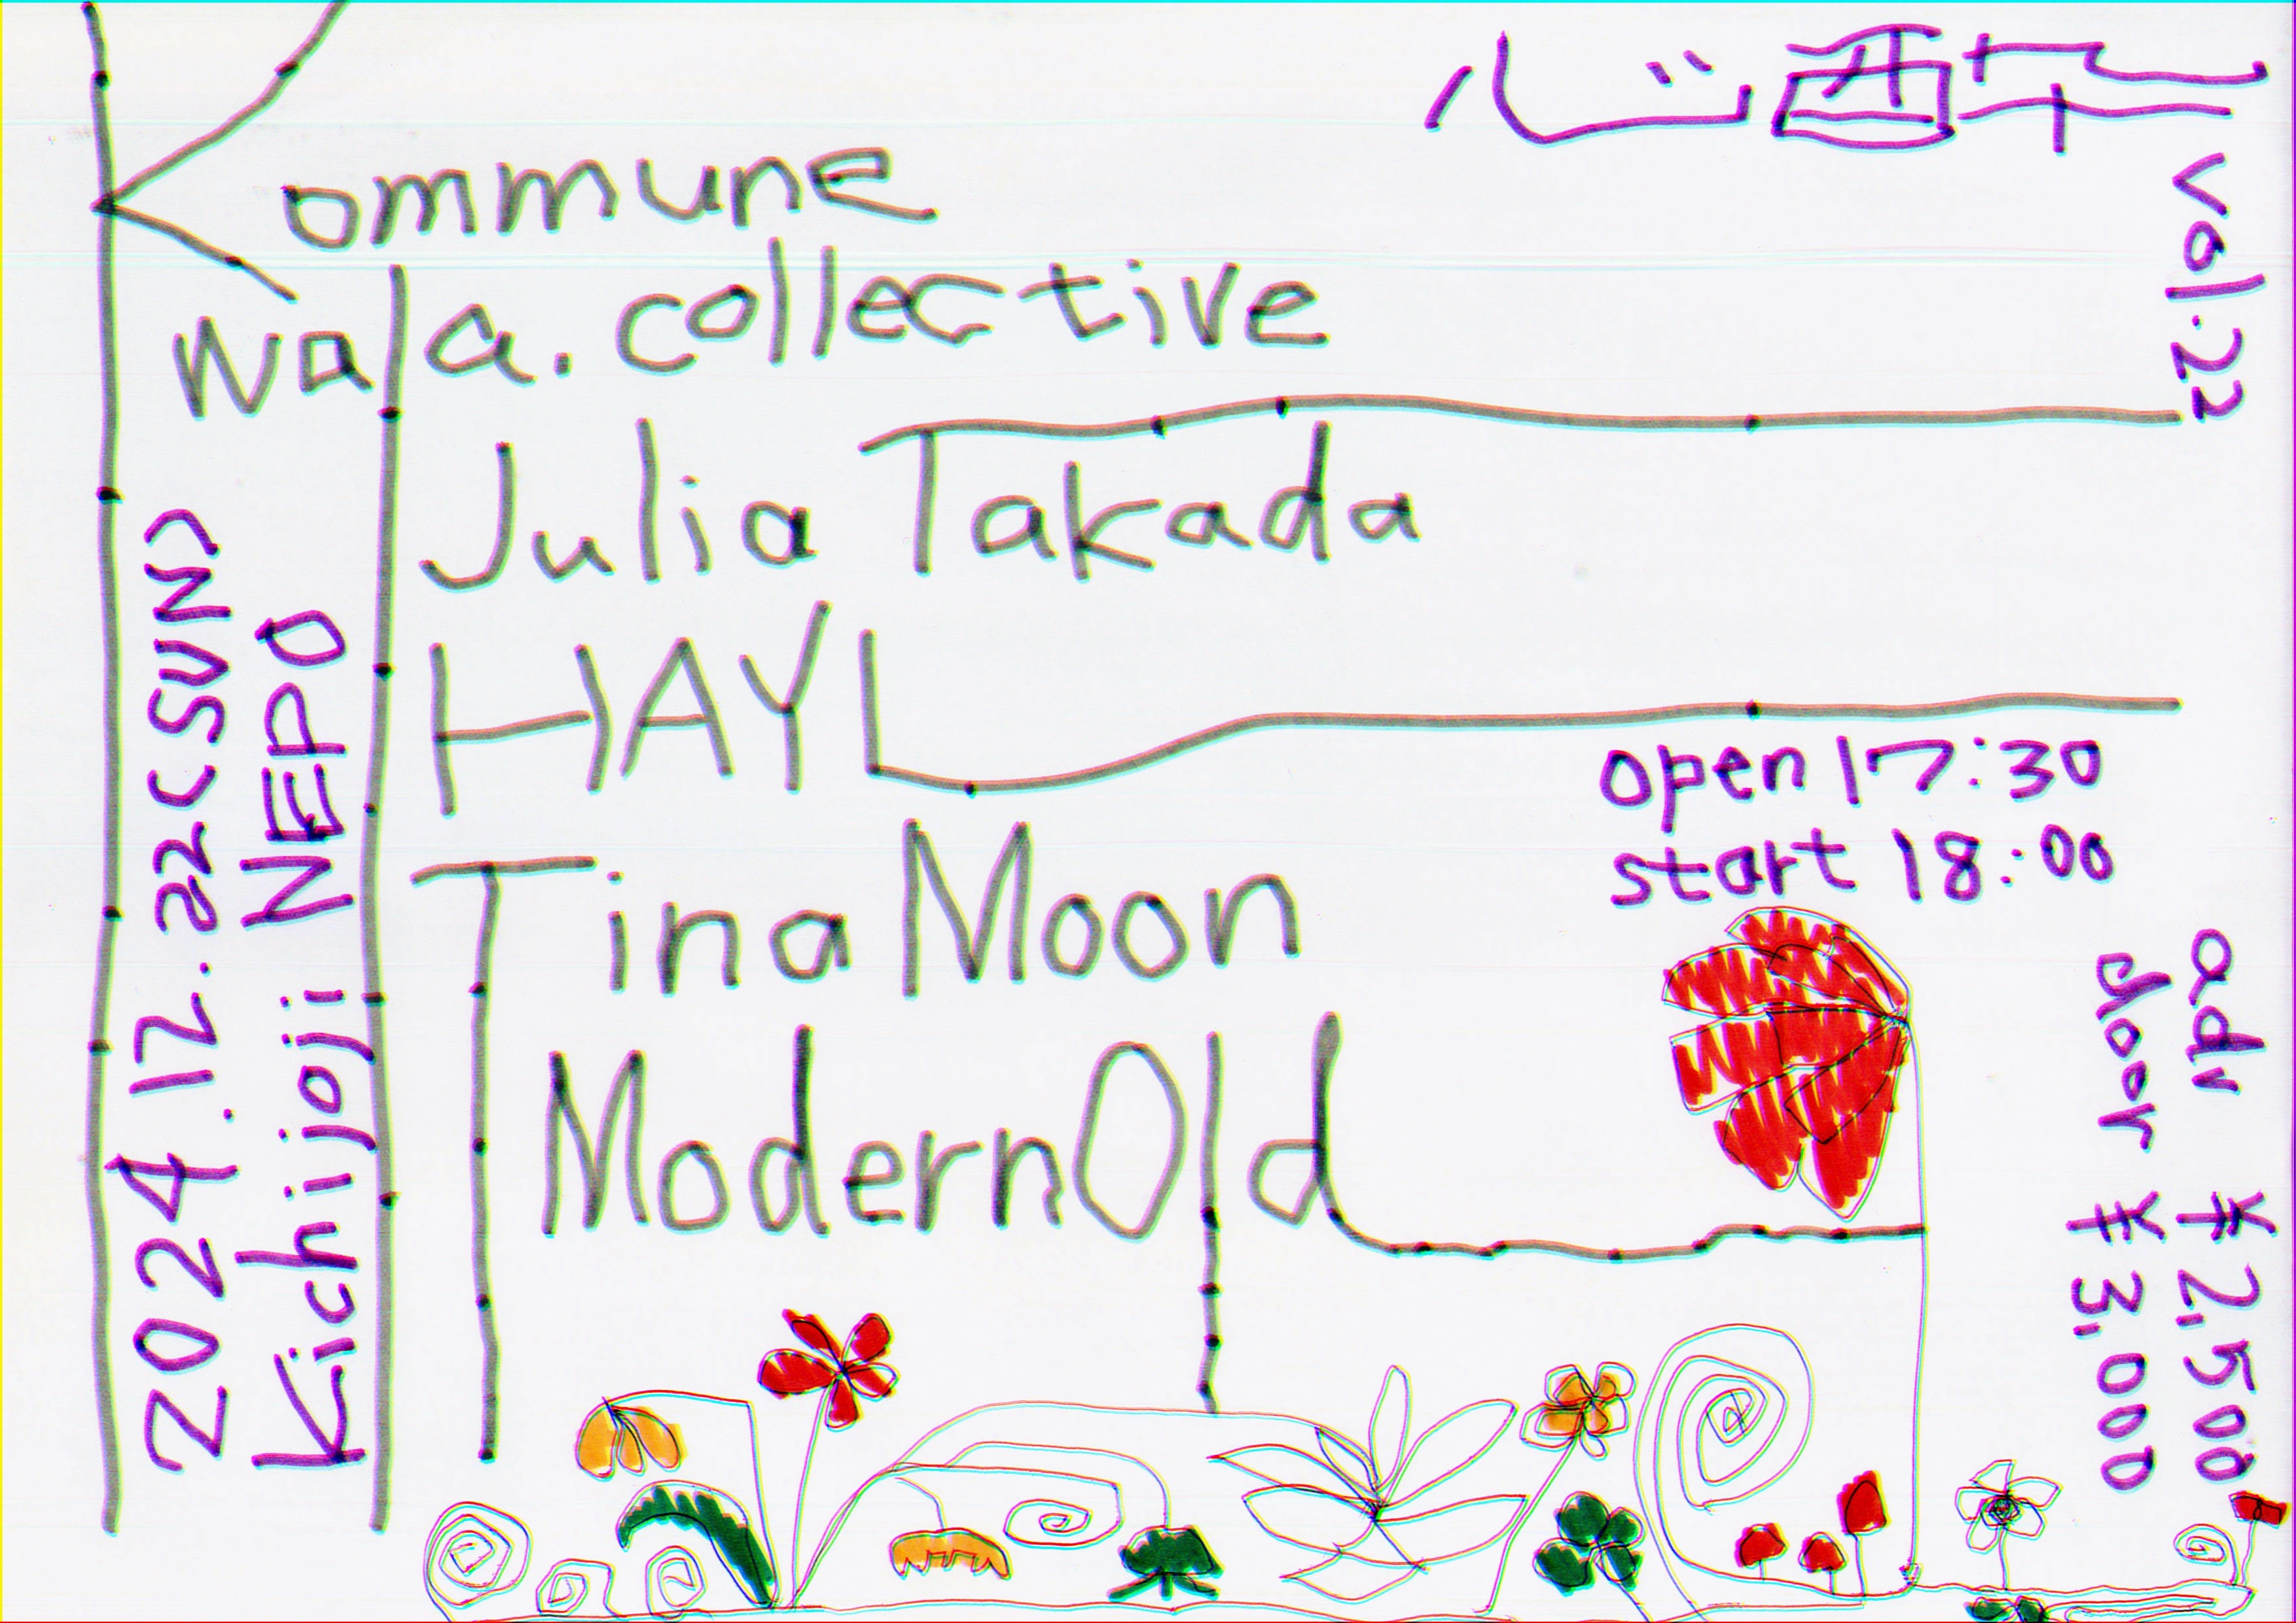 Kommune
Wala. collective
Julia Takada
HAYL
Tina Moon
ModernOld
vol.22
2024.12.22(SUN)
Kichijoji NEPO
open 17:30
start 18:00
adv ¥2,500
door ¥3,000